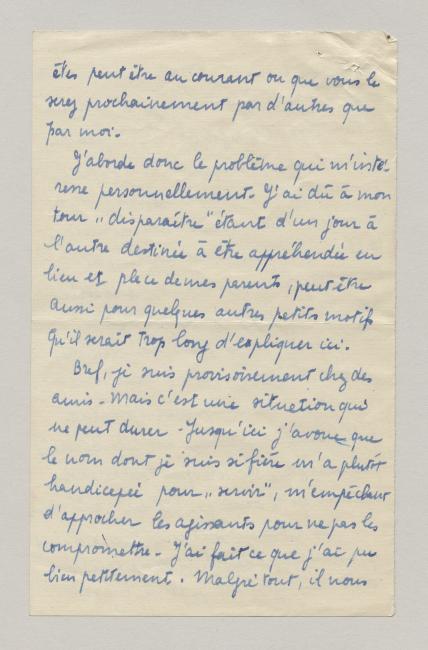 êtes peut être au courant ou que vous le
serez prochainement par d'autres que
par moi.
J'aborde donc le problème qui m'inté-
resse personnellement. J'ai dû à mon
tour „disparaître" étant d'un jour à
l'autre destinée à être appréhendée en
lieu et place de mes parents, peut être
aussi pour quelques autres petits motifs
qu'il serait trop long d'expliquer ici.
Bref, je suis provisoirement chez des
amis - Mais c'est une situation qui
ne peut durer - Jusqu'ici j'avoue que
le nom dont je suis si fière m'a plutôt
handicapée pour „servir", m'empêchant
d'approcher les agissants pour ne pas les
compromettre - J'ai fait ce que j'ai pu
bien petitement. Malgré tout, il nous